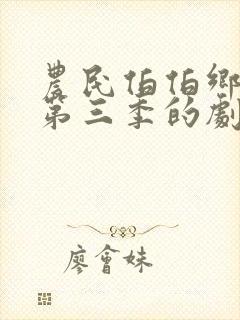 農民伯伯鄉
第三季的劇
廖會妹